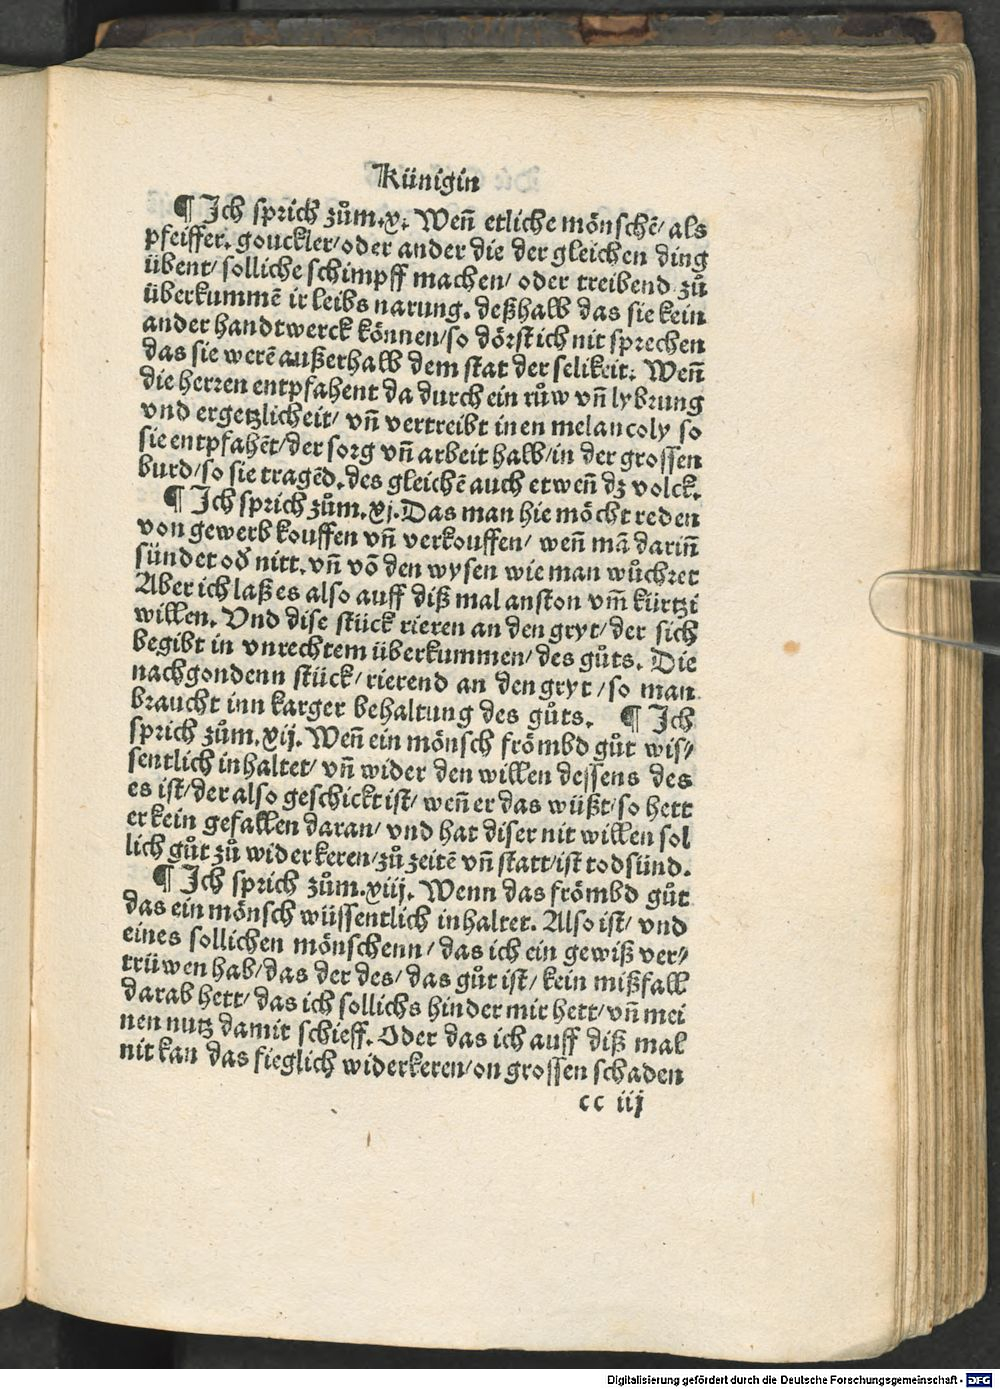 Künigin
¶ Ich sprich zům.x. Weñ etliche mönschē/ als
pfeiffer. gouckler/oder ander die der gleichen ding
übent/ solliche schimpff machen/ oder treibend zů
überkummē ir leibs narung. deßhalb das sie kein
ander handtwerck können/so dörst ich nit sprechen
das sie werē außerhalb dem stat der selikeit. Weñ
die herren entpfahent da durch ein růw vñ lybrung
vnd ergetzlicheit/ vñ vertreibt inen melancoly so
sie entpfahēt/der sorg vñ arbeit halb/in der grossen
burd/so sie tragēd.des gleichē auch etweñ dz volck.
¶ Ich sprich zům.xj.Das man hie möcht reden
von gewerb kouffen vñ verkouffen/ weñ mā dariñ
sündet oď nitt.vñ vō den wysen wie man wůchret
Aber ich laß es also auff diß mal anston vm̄ kürtzi
willen. Vnd dise stück rieren an den gryt/der sich
begibt in vnrechtem überkummen/des gůts. Die
nachgondenn stück/rierend an den gryt/so man
braucht inn karger behaltung des gůts. ¶ Ich
sprich zům.xij. Weñ ein mönsch frömbd gůt wis/
sentlich inhaltet/ vñ wider den willen dessens des
es ist/der also geschickt ist/ weñ er das wüßt/so hett
er kein gefallen daran/ vnd hat diser nit willen sol
lich gůt zů widerkeren/zů zeitē vñ statt/ist todsünd.
¶ Ich sprich zům.xiij. Wenn das frömbd gůt
das ein mönsch wüssentlich inhaltet. Also ist/ vnd
eines sollichen mönschenn/das ich ein gewiß ver/
trüwen hab/das der des/das gůt ist/ kein mißfall
darab hett/das ich sollichs hinder mir hett/vñ mei
nen nutz damit schieff. Oder das ich auff diß mal
nit kan das fieglich widerkeren/on grossen schaden
cc iij
Digitalisierung gefördert durch die Deutsche Forschungsgemeinschaft - DFG